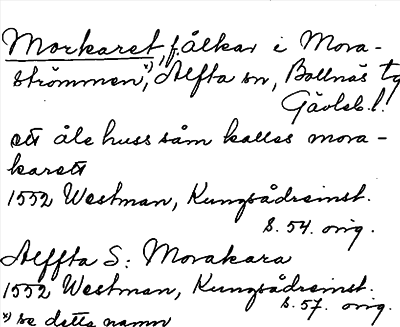 Morkaret, f. ålkar i Mora-
strömmen,*) Alfta sn, Bollnäs tg
Gävleb. l.
ett åle huss såm kalles mora-
karett
1552 Westman, Kungsådreinst.
s. 54. orig.
Alffta S: Morakara
1552 Westman, Kungsådreinst.
s. 57. orig.
*) se detta namn